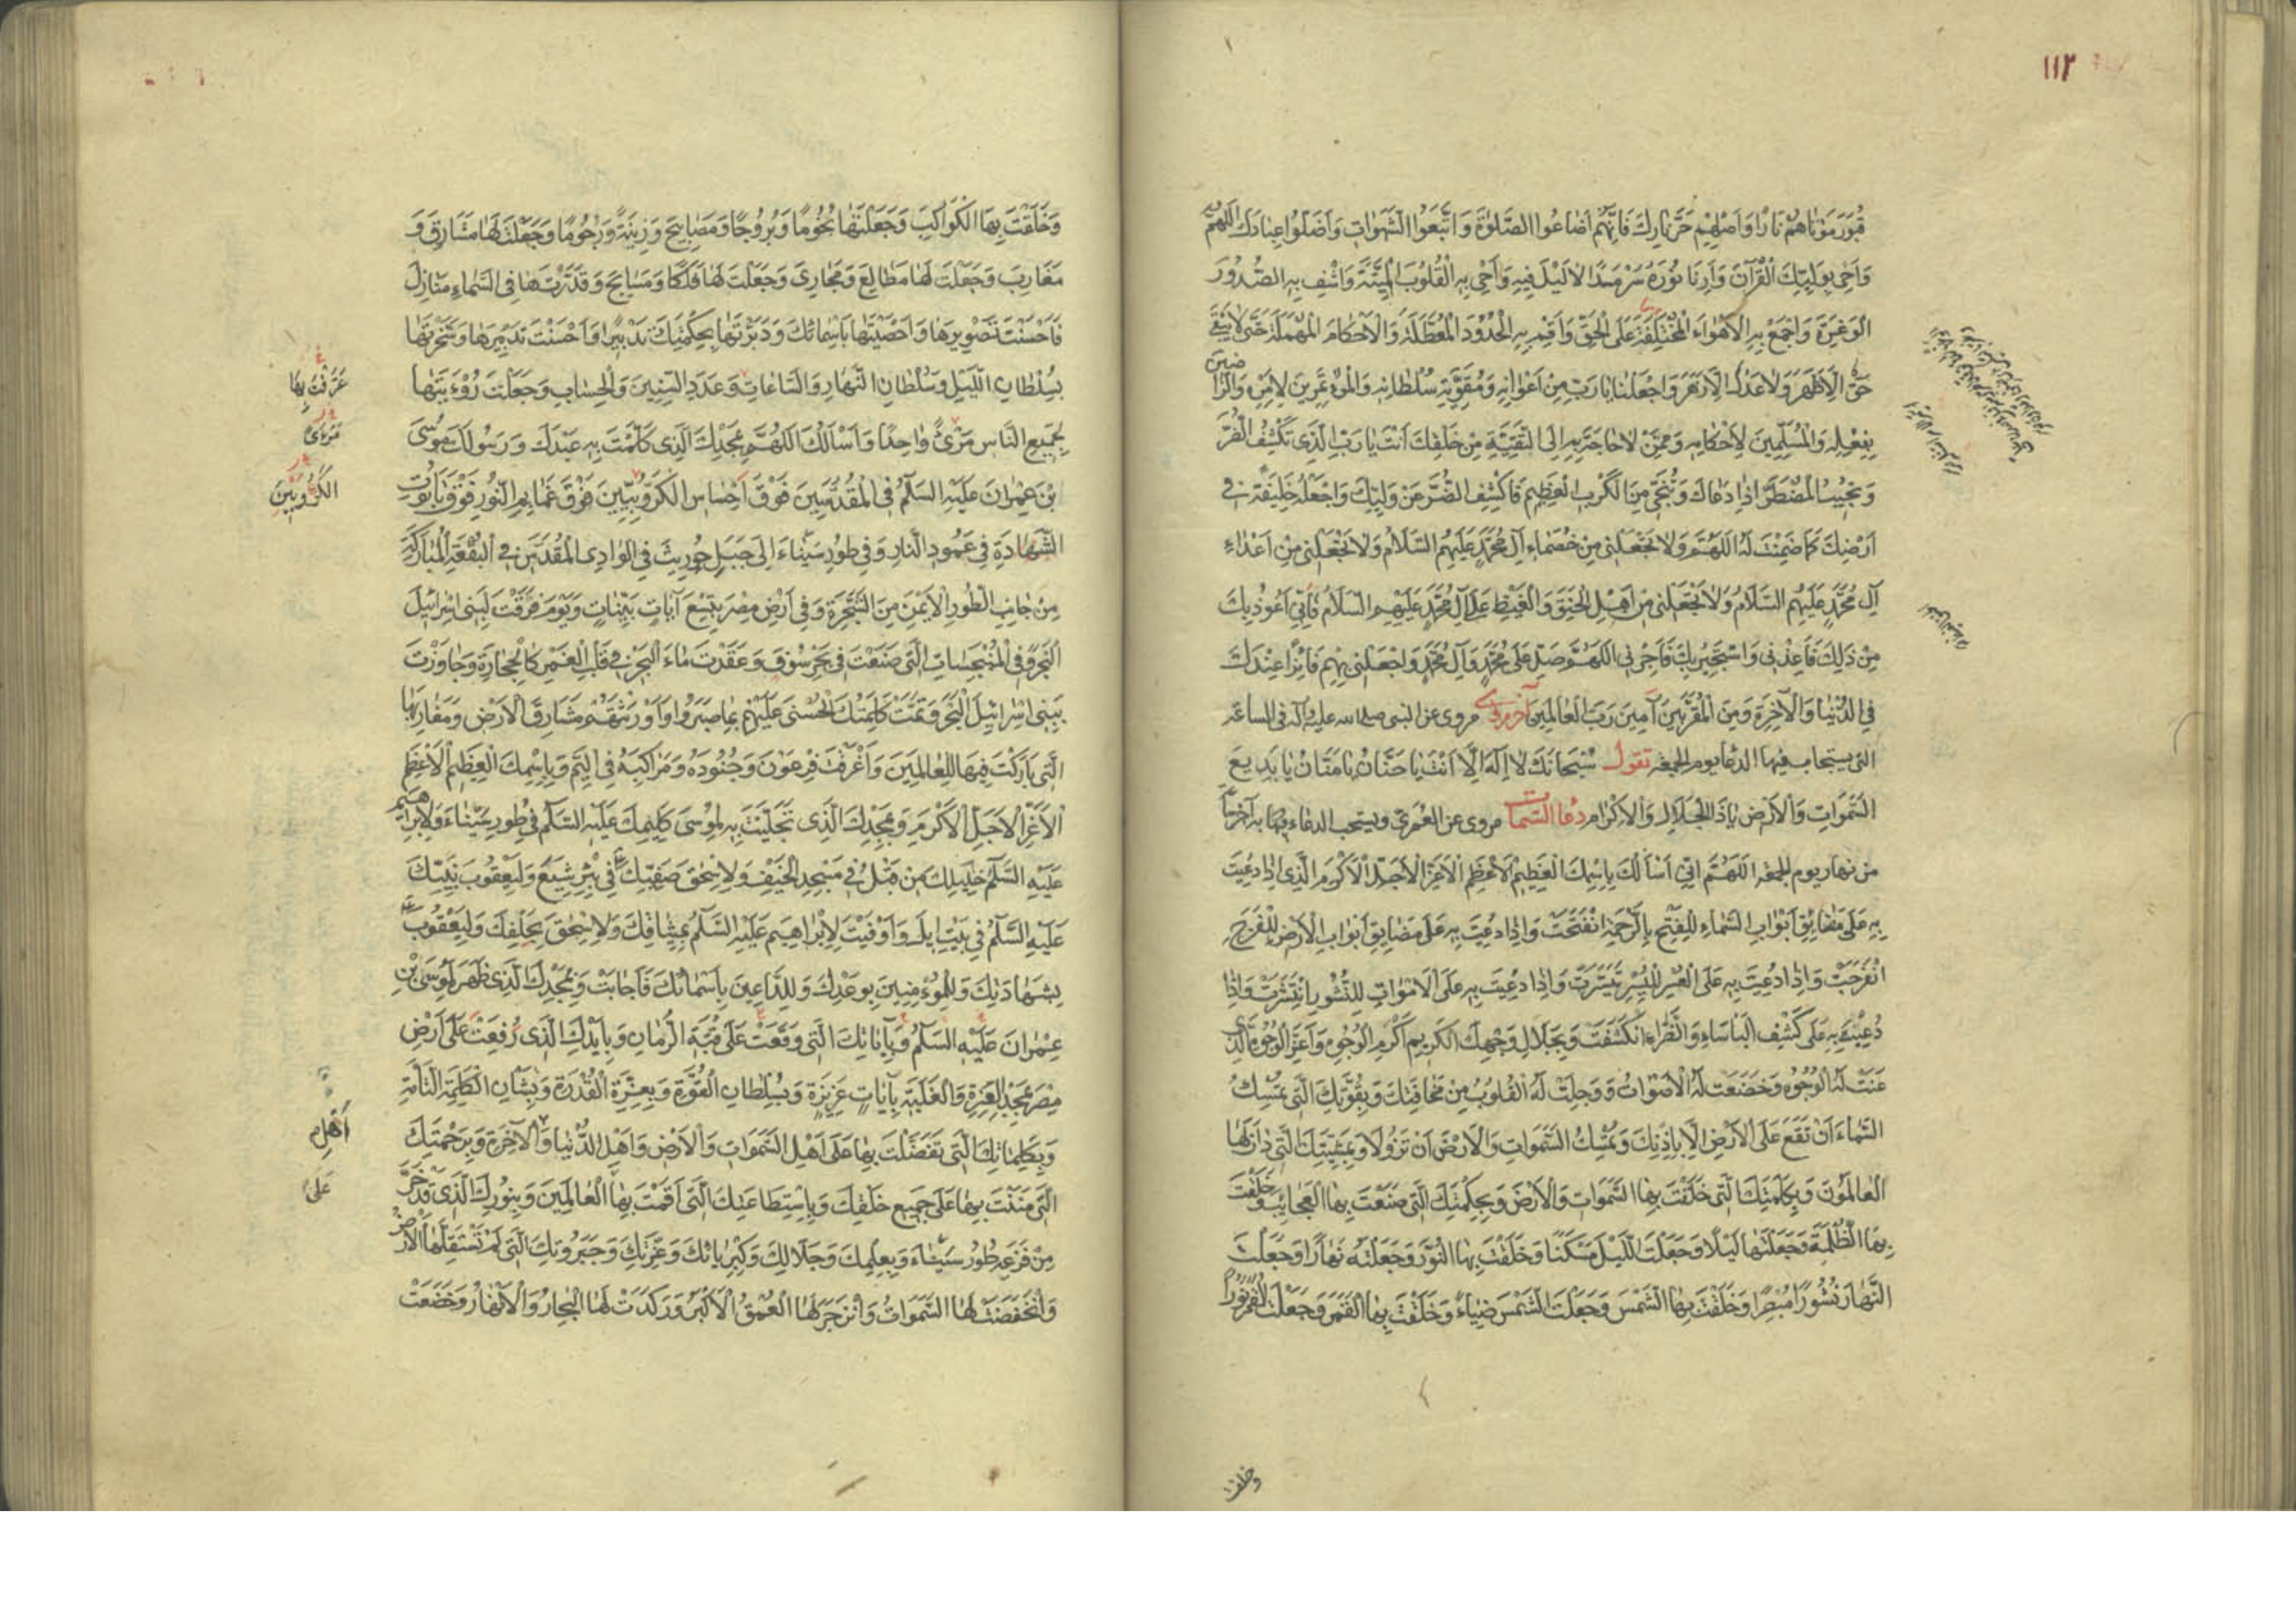 ١١٢
قُبُورَ مَوْتَاهُمْ نَارًا وَاَصْلِهِمْ حَرَّ نَارِكَ فَاِنَّهُمْ اَضَاعُوا الصَّلٰوةَ وَاتَّبَعُوا الشَّهَوَاتِ وَاَضَلُّوا عِبَادَكَ اَللّٰهُمَّ
وَاَحْيِ بِوَلِيِّكَ الْقُرْآنَ وَاَرِنَا نُورَهُ سَرْمَدًا لَا لَيْلَ فِيهِ وَاَحْيِ بِهِ الْقُلُوبَ الْمَيِّتَةَ وَاشْفِ بِهِ الصُّدُورَ
الْوَغِرَةَ وَاجْمَعْ بِهِ الْاَهْوَاءَ الْمُخْتَلِفَةَ عَلَى الْحَقِّ وَاَقِمْ بِهِ الْحُدُودَ الْمُعَطَّلَةَ وَالْاَحْكَامَ الْمُهْمَلَةَ حَتّٰى لَا يَبْقٰى
حَقٌّ اِلَّا ظَهَرَ وَلَا عَدْلٌ اِلَّا زَهَرَ وَاجْعَلْنَا يَا رَبِّ مِنْ اَعْوَانِهِ وَمُقَوِّيَةِ سُلْطَانِهِ وَالْمُؤْتَمِرِينَ لِاَمْرِهِ وَالرَّاضِينَ
بِفِعْلِهِ وَالْمُسَلِّمِينَ لِاَحْكَامِهِ وَمِمَّنْ لَا حَاجَةَ بِهِ اِلَى التَّقِيَّةِ مِنْ خَلْقِكَ اَنْتَ يَا رَبِّ الَّذِي تَكْشِفُ الضُّرَّ
وَتُجِيبُ الْمُضْطَرَّ اِذَا دَعَاكَ وَتُنْجِي مِنَ الْكَرْبِ الْعَظِيمِ فَاكْشِفِ الضُّرَّ عَنْ وَلِيِّكَ وَاجْعَلْهُ خَلِيفَةً فِي
اَرْضِكَ كَمَا ضَمِنْتَ لَهُ اَللّٰهُمَّ وَلَا تَجْعَلْنِي مِنْ خُصَمَاءِ آلِ مُحَمَّدٍ عَلَيْهِمُ السَّلَامُ وَلَا تَجْعَلْنِي مِنْ اَعْدَاءِ
آلِ مُحَمَّدٍ عَلَيْهِمُ السَّلَامُ وَلَا تَجْعَلْنِي مِنْ اَهْلِ الْحَنَقِ وَالْغَيْظِ عَلٰى آلِ مُحَمَّدٍ عَلَيْهِمُ السَّلَامُ فَاِنِّي اَعُوذُ بِكَ
مِنْ ذٰلِكَ فَاَعِذْنِي وَاَسْتَجِيرُ بِكَ فَاَجِرْنِي اَللّٰهُمَّ صَلِّ عَلٰى مُحَمَّدٍ وَآلِ مُحَمَّدٍ وَاجْعَلْنِي بِهِمْ فَائِزًا عِنْدَكَ
فِي الدُّنْيَا وَالْآخِرَةِ وَمِنَ الْمُقَرَّبِينَ آمِينَ رَبَّ الْعَالَمِينَ آخر مروى مروى عن النبى صلى الله عليه وآله فى الساعة
التى يستجاب فيها الدعا يوم الجمعة تقول سُبْحَانَكَ لَا اِلٰهَ اِلَّا اَنْتَ يَا حَنَّانُ يَا مَنَّانُ يَا بَدِيعَ
السَّمٰوَاتِ وَالْاَرْضِ يَا ذَا الْجَلَالِ وَالْاِكْرَامِ دعا السمات مروى عن العمرى ويستحب الدعاء بها آخر ساعة
من نهار يوم الجمعة اَللّٰهُمَّ اِنِّي اَسْاَلُكَ بِاسْمِكَ الْعَظِيمِ الْاَعْظَمِ الْاَعَزِّ الْاَجَلِّ الْاَكْرَمِ الَّذِي اِذَا دُعِيتَ
بِهِ عَلٰى مَغَالِقِ اَبْوَابِ السَّمَاءِ لِلْفَتْحِ بِالرَّحْمَةِ انْفَتَحَتْ وَاِذَا دُعِيتَ بِهِ عَلٰى مَضَايِقِ اَبْوَابِ الْاَرْضِ لِلْفَرَجِ
انْفَرَجَتْ وَاِذَا دُعِيتَ بِهِ عَلَى الْعُسْرِ لِلْيُسْرِ تَيَسَّرَتْ وَاِذَا دُعِيتَ بِهِ عَلَى الْاَمْوَاتِ لِلنُّشُورِ انْتَشَرَتْ وَاِذَا
دُعِيتَ بِهِ عَلٰى كَشْفِ الْبَأْسَاءِ وَالضَّرَّاءِ انْكَشَفَتْ وَبِجَلَالِ وَجْهِكَ الْكَرِيمِ اَكْرَمِ الْوُجُوهِ وَاَعَزِّ الْوُجُوهِ الَّذِي
عَنَتْ لَهُ الْوُجُوهُ وَخَضَعَتْ لَهُ الْاَصْوَاتُ وَوَجِلَتْ لَهُ الْقُلُوبُ مِنْ مَخَافَتِكَ وَبِقُوَّتِكَ الَّتِي تُمْسِكُ
السَّمَاءَ اَنْ تَقَعَ عَلَى الْاَرْضِ اِلَّا بِاِذْنِكَ وَتُمْسِكُ السَّمٰوَاتِ وَالْاَرْضَ اَنْ تَزُولَا وَبِمَشِيَّتِكَ الَّتِي دَانَ لَهَا
الْعَالَمُونَ وَبِكَلِمَتِكَ الَّتِي خَلَقْتَ بِهَا السَّمٰوَاتِ وَالْاَرْضَ وَبِحِكْمَتِكَ الَّتِي صَنَعْتَ بِهَا الْعَجَائِبَ وَخَلَقْتَ
بِهَا الظُّلْمَةَ وَجَعَلْتَهَا لَيْلًا وَجَعَلْتَ اللَّيْلَ سَكَنًا وَخَلَقْتَ بِهَا النُّورَ وَجَعَلْتَهُ نَهَارًا وَجَعَلْتَ
النَّهَارَ نُشُورًا مُبْصِرًا وَخَلَقْتَ بِهَا الشَّمْسَ وَجَعَلْتَ الشَّمْسَ ضِيَاءً وَخَلَقْتَ بِهَا الْقَمَرَ وَجَعَلْتَ الْقَمَرَ نُورًا
وخلقت
وَخَلَقْتَ بِهَا الْكَوَاكِبَ وَجَعَلْتَهَا نُجُومًا وَبُرُوجًا وَمَصَابِيحَ وَزِينَةً وَرُجُومًا وَجَعَلْتَ لَهَا مَشَارِقَ وَ
مَغَارِبَ وَجَعَلْتَ لَهَا مَطَالِعَ وَمَجَارِيَ وَجَعَلْتَ لَهَا فَلَكًا وَمَسَابِحَ وَقَدَّرْتَهَا فِي السَّمَاءِ مَنَازِلَ
فَاَحْسَنْتَ تَصْوِيرَهَا وَاَحْصَيْتَهَا بِاَسْمَائِكَ وَدَبَّرْتَهَا بِحِكْمَتِكَ تَدْبِيرًا وَاَحْسَنْتَ تَدْبِيرَهَا وَسَخَّرْتَهَا
بِسُلْطَانِ اللَّيْلِ وَسُلْطَانِ النَّهَارِ وَالسَّاعَاتِ وَعَدَدِ السِّنِينَ وَالْحِسَابِ وَجَعَلْتَ رُؤْيَتَهَا
عَرَّفْتَ بِهَا
لِجَمِيعِ النَّاسِ مَرْئً وَاحِدًا وَاَسْاَلُكَ اَللّٰهُمَّ بِمَجْدِكَ الَّذِي كَلَّمْتَ بِهِ عَبْدَكَ وَرَسُولَكَ مُوسَى
مَرْءًى
بْنَ عِمْرَانَ عَلَيْهِ السَّلَامُ فِي الْمُقَدَّسِينَ فَوْقَ اِحْسَاسِ الْكَرُّوبِيِّينَ فَوْقَ غَمَائِمِ النُّورِ فَوْقَ تَابُوتِ
الْكَرُوبِينَ
الشَّهَادَةِ فِي عَمُودِ النَّارِ وَفِي طُورِ سَيْنَاءَ اِلٰى جَبَلِ حُورِيثَ فِي الْوَادِ الْمُقَدَّسِ فِي الْبُقْعَةِ الْمُبَارَكَةِ
مِنْ جَانِبِ الطُّورِ الْاَيْمَنِ مِنَ الشَّجَرَةِ وَفِي اَرْضِ مِصْرَ بِتِسْعِ آيَاتٍ بَيِّنَاتٍ وَيَوْمَ فَرَقْتَ لِبَنِي اِسْرَائِيلَ
الْبَحْرَ وَفِي الْمُنْبَجِسَاتِ الَّتِي صَنَعْتَ فِي بَحْرِ سُوفٍ وَعَقَدْتَ مَاءَ الْبَحْرِ فِي قَلْبِ الْغَمْرِ كَالْحِجَارَةِ وَجَاوَزْتَ
بِبَنِي اِسْرَائِيلَ الْبَحْرَ وَتَمَّتْ كَلِمَتُكَ الْحُسْنٰى عَلَيْهِمْ بِمَا صَبَرُوا وَاَوْرَثْتَهُمْ مَشَارِقَ الْاَرْضِ وَمَغَارِبَهَا
الَّتِي بَارَكْتَ فِيهَا لِلْعَالَمِينَ وَاَغْرَقْتَ فِرْعَوْنَ وَجُنُودَهُ وَمَرَاكِبَهُ فِي الْيَمِّ وَبِاسْمِكَ الْعَظِيمِ الْاَعْظَمِ
الْاَعَزِّ الْاَجَلِّ الْاَكْرَمِ وَبِمَجْدِكَ الَّذِي تَجَلَّيْتَ بِهِ لِمُوسٰى كَلِيمِكَ عَلَيْهِ السَّلَامُ فِي طُورِ سَيْنَاءَ وَلِاِبْرَاهِيمَ
عَلَيْهِ السَّلَامُ خَلِيلِكَ مِنْ قَبْلُ فِي مَسْجِدِ الْخَيْفِ وَلِاِسْحٰقَ صَفِيِّكَ فِي بِئْرِ شِيَعٍ وَلِيَعْقُوبَ نَبِيِّكَ
عَلَيْهِ السَّلَامُ فِي بَيْتِ اِيلٍ وَاَوْفَيْتَ لِاِبْرَاهِيمَ عَلَيْهِ السَّلَامُ بِمِيثَاقِكَ وَلِاِسْحٰقَ بِحَلْفِكَ وَلِيَعْقُوبَ
بِشَهَادَتِكَ وَلِلْمُؤْمِنِينَ بِوَعْدِكَ وَلِلدَّاعِينَ بِاَسْمَائِكَ فَاَجَابَتْ وَبِمَجْدِكَ الَّذِي ظَهَرَ لِمُوسَى بْنِ
عِمْرَانَ عَلَيْهِ السَّلَامُ وَبِآيَاتِكَ الَّتِي وَقَعَتْ عَلٰى قُبَّةِ الرُّمَّانِ وَبِاَيْدِكَ الَّذِي رُفِعَتْ عَلٰى اَرْضِ
مِصْرَ بِمَجْدِ الْعِزَّةِ وَالْغَلَبَةِ بِآيَاتٍ عَزِيزَةٍ وَبِسُلْطَانِ الْقُوَّةِ وَبِعِزَّةِ الْقُدْرَةِ وَبِشَاْنِ الْكَلِمَةِ التَّامَّةِ
وَبِكَلِمَاتِكَ الَّتِي تَفَضَّلْتَ بِهَا عَلٰى اَهْلِ السَّمٰوَاتِ وَالْاَرْضِ وَاَهْلِ الدُّنْيَا وَالْآخِرَةِ وَبِرَحْمَتِكَ
اَهْلِ
الَّتِي مَنَنْتَ بِهَا عَلٰى جَمِيعِ خَلْقِكَ وَبِاسْتِطَاعَتِكَ الَّتِي اَقَمْتَ بِهَا الْعَالَمِينَ وَبِنُورِكَ الَّذِي قَدْ خَرَّ
عَلَى
مِنْ فَزَعِهِ طُورُ سَيْنَاءَ وَبِعِلْمِكَ وَجَلَالِكَ وَكِبْرِيَائِكَ وَعِزَّتِكَ وَجَبَرُوتِكَ الَّتِي لَمْ تَسْتَقِلَّهَا الْاَرْضُ
وَانْخَفَضَتْ لَهَا السَّمٰوَاتُ وَانْزَجَرَ لَهَا الْعُمْقُ الْاَكْبَرُ وَرَكَدَتْ لَهَا الْبِحَارُ وَالْاَنْهَارُ وَخَضَعَتْ